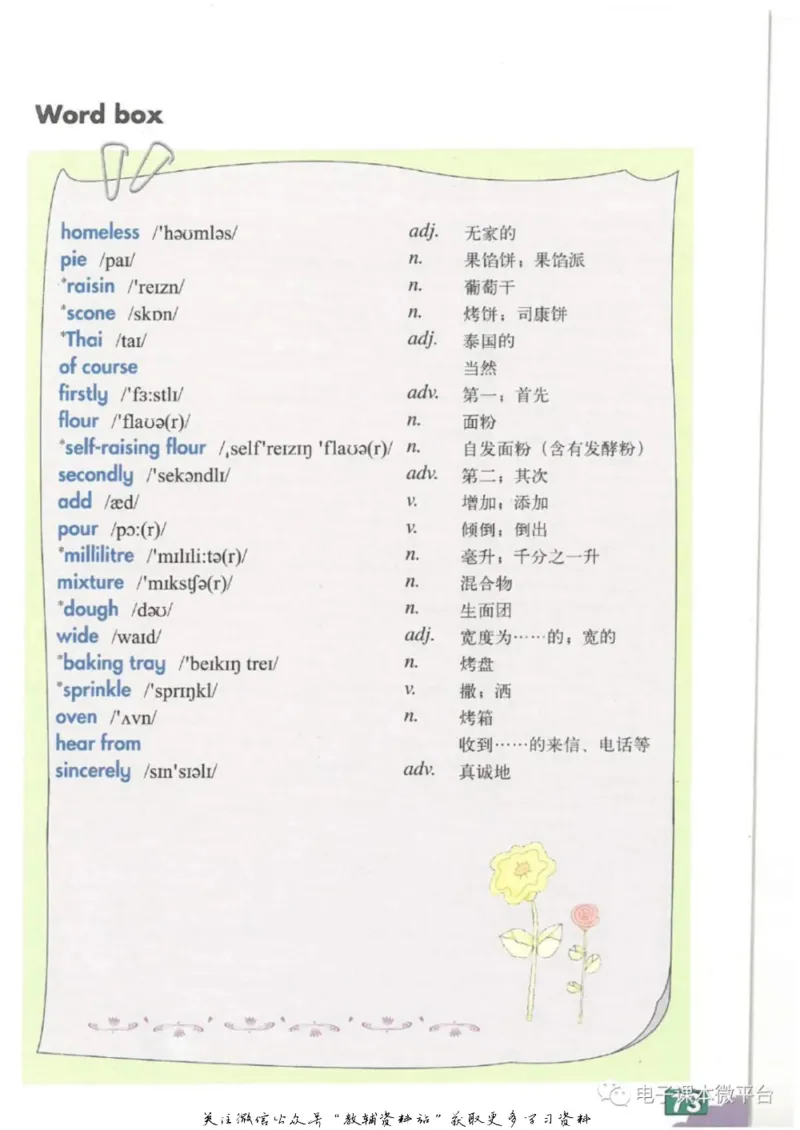 Word box
homeless /'həʊmləs/ adj. 无家的
pie /paɪ/ n. 果馅饼；果馅派
*raisin /'reɪzn/ n. 葡萄干
*scone /skɒn/ n. 烤饼；司康饼
*Thai /taɪ/ adj. 泰国的
of course 当然
firstly /'fɜ:stlɪ/ adv. 第一；首先
flour /'flaʊə(r)/ n. 面粉
*self-raising flour /ˌself'reɪzɪŋ 'flaʊə(r)/ n. 自发面粉（含有发酵粉）
secondly /'sekəndlɪ/ adv. 第二；其次
add /æd/ v. 增加；添加
pour /pɔ:(r)/ v. 倾倒；倒出
*millilitre /'mɪlɪli:tə(r)/ n. 毫升；千分之一升
mixture /'mɪkstʃə(r)/ n. 混合物
*dough /dəʊ/ n. 生面团
wide /waɪd/ adj. 宽度为……的；宽的
*baking tray /'beɪkɪŋ treɪ/ n. 烤盘
*sprinkle /'sprɪŋkl/ v. 撒；洒
oven /'ʌvn/ n. 烤箱
hear from 收到……的来信、电话等
sincerely /sɪn'sɪəlɪ/ adv. 真诚地
电子课本微平台
73
关注微信公众号“教辅资料站”获取更多学习资料